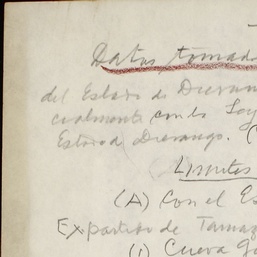 Datos tomado
del Estado de Duran
cialmente con la Ley
Estado Durango. (
Limites
(A) Con el Es
Expartido de Tamaz
(1) Cueva G